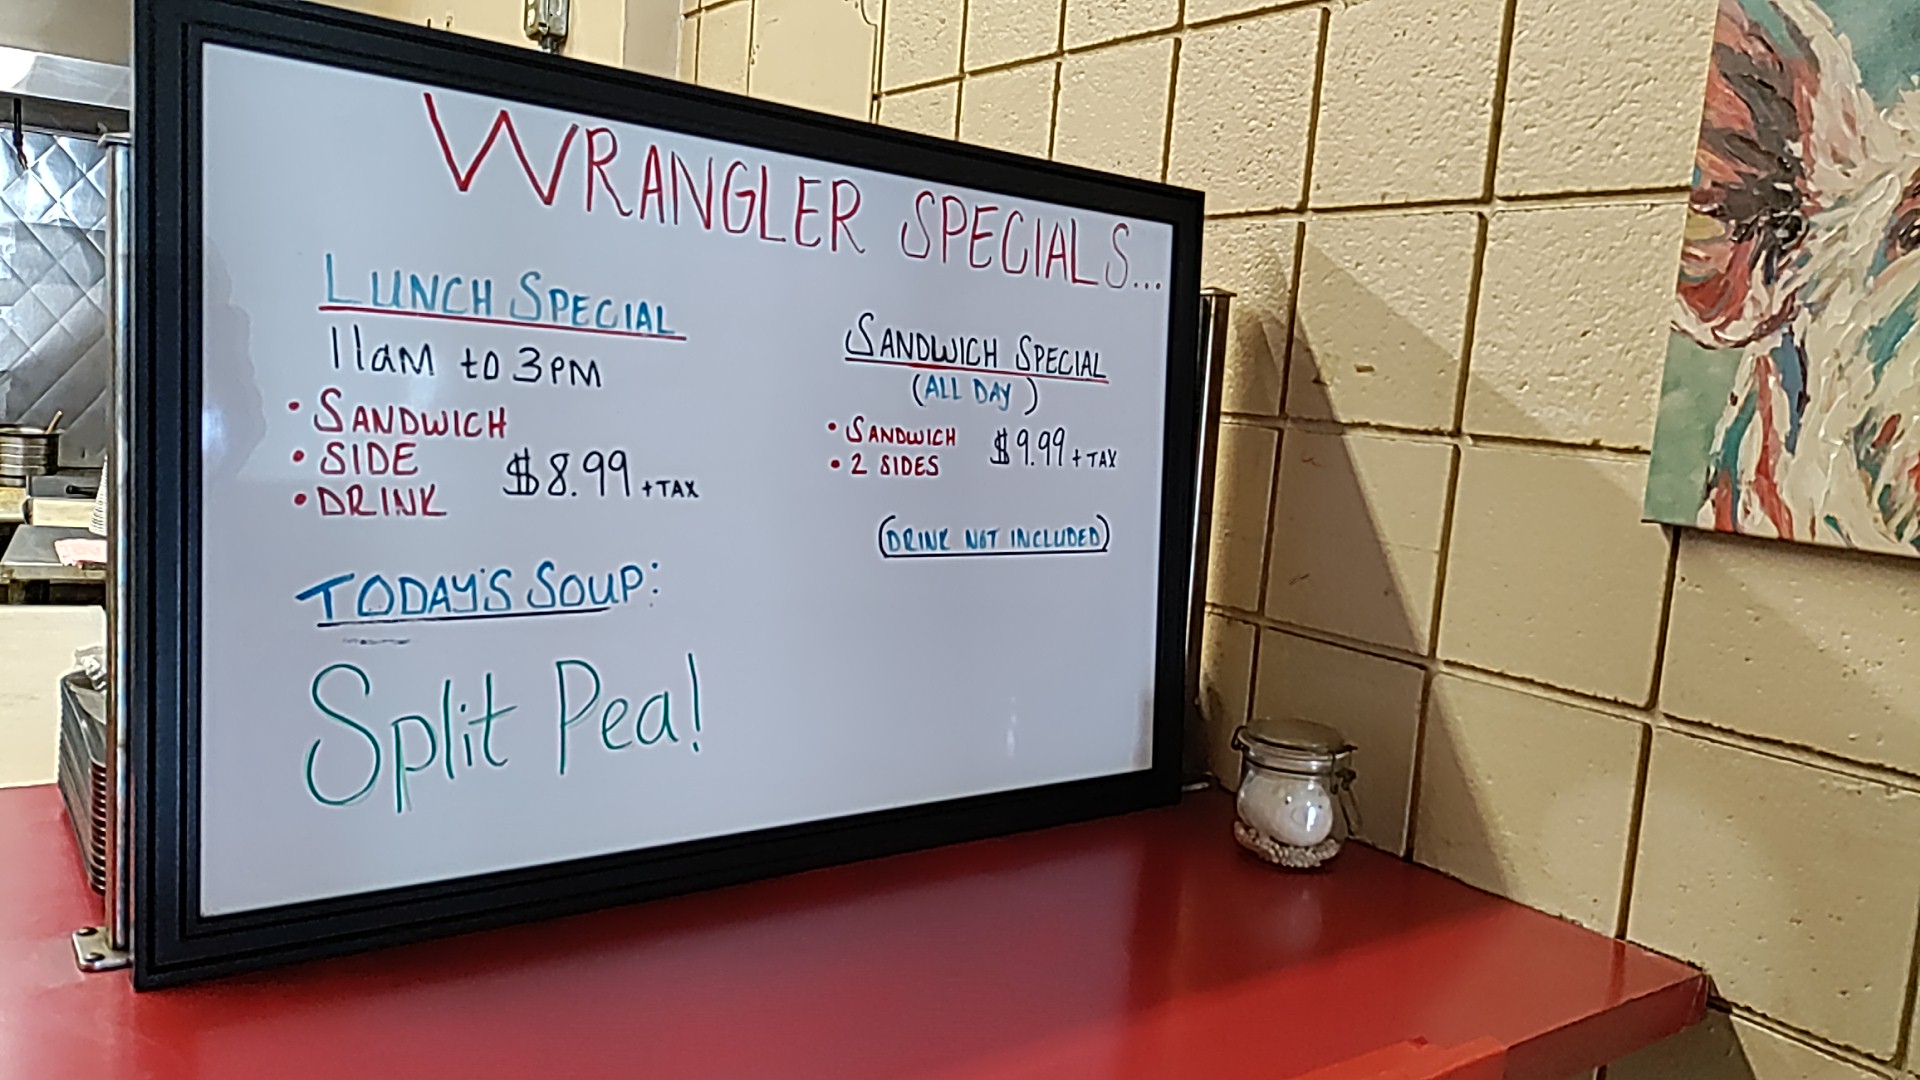 WRANGLER SPECIALS...
LUNCH SPECIAL
11AM to 3PM
• SANDWICH
• SIDE
• DRINK
$8.99 + TAX
TODAY'S SOUP:
Split Pea!
SANDWICH SPECIAL
(ALL DAY)
• SANDWICH
• 2 SIDES
$9.99 + TAX
(DRINK NOT INCLUDED)